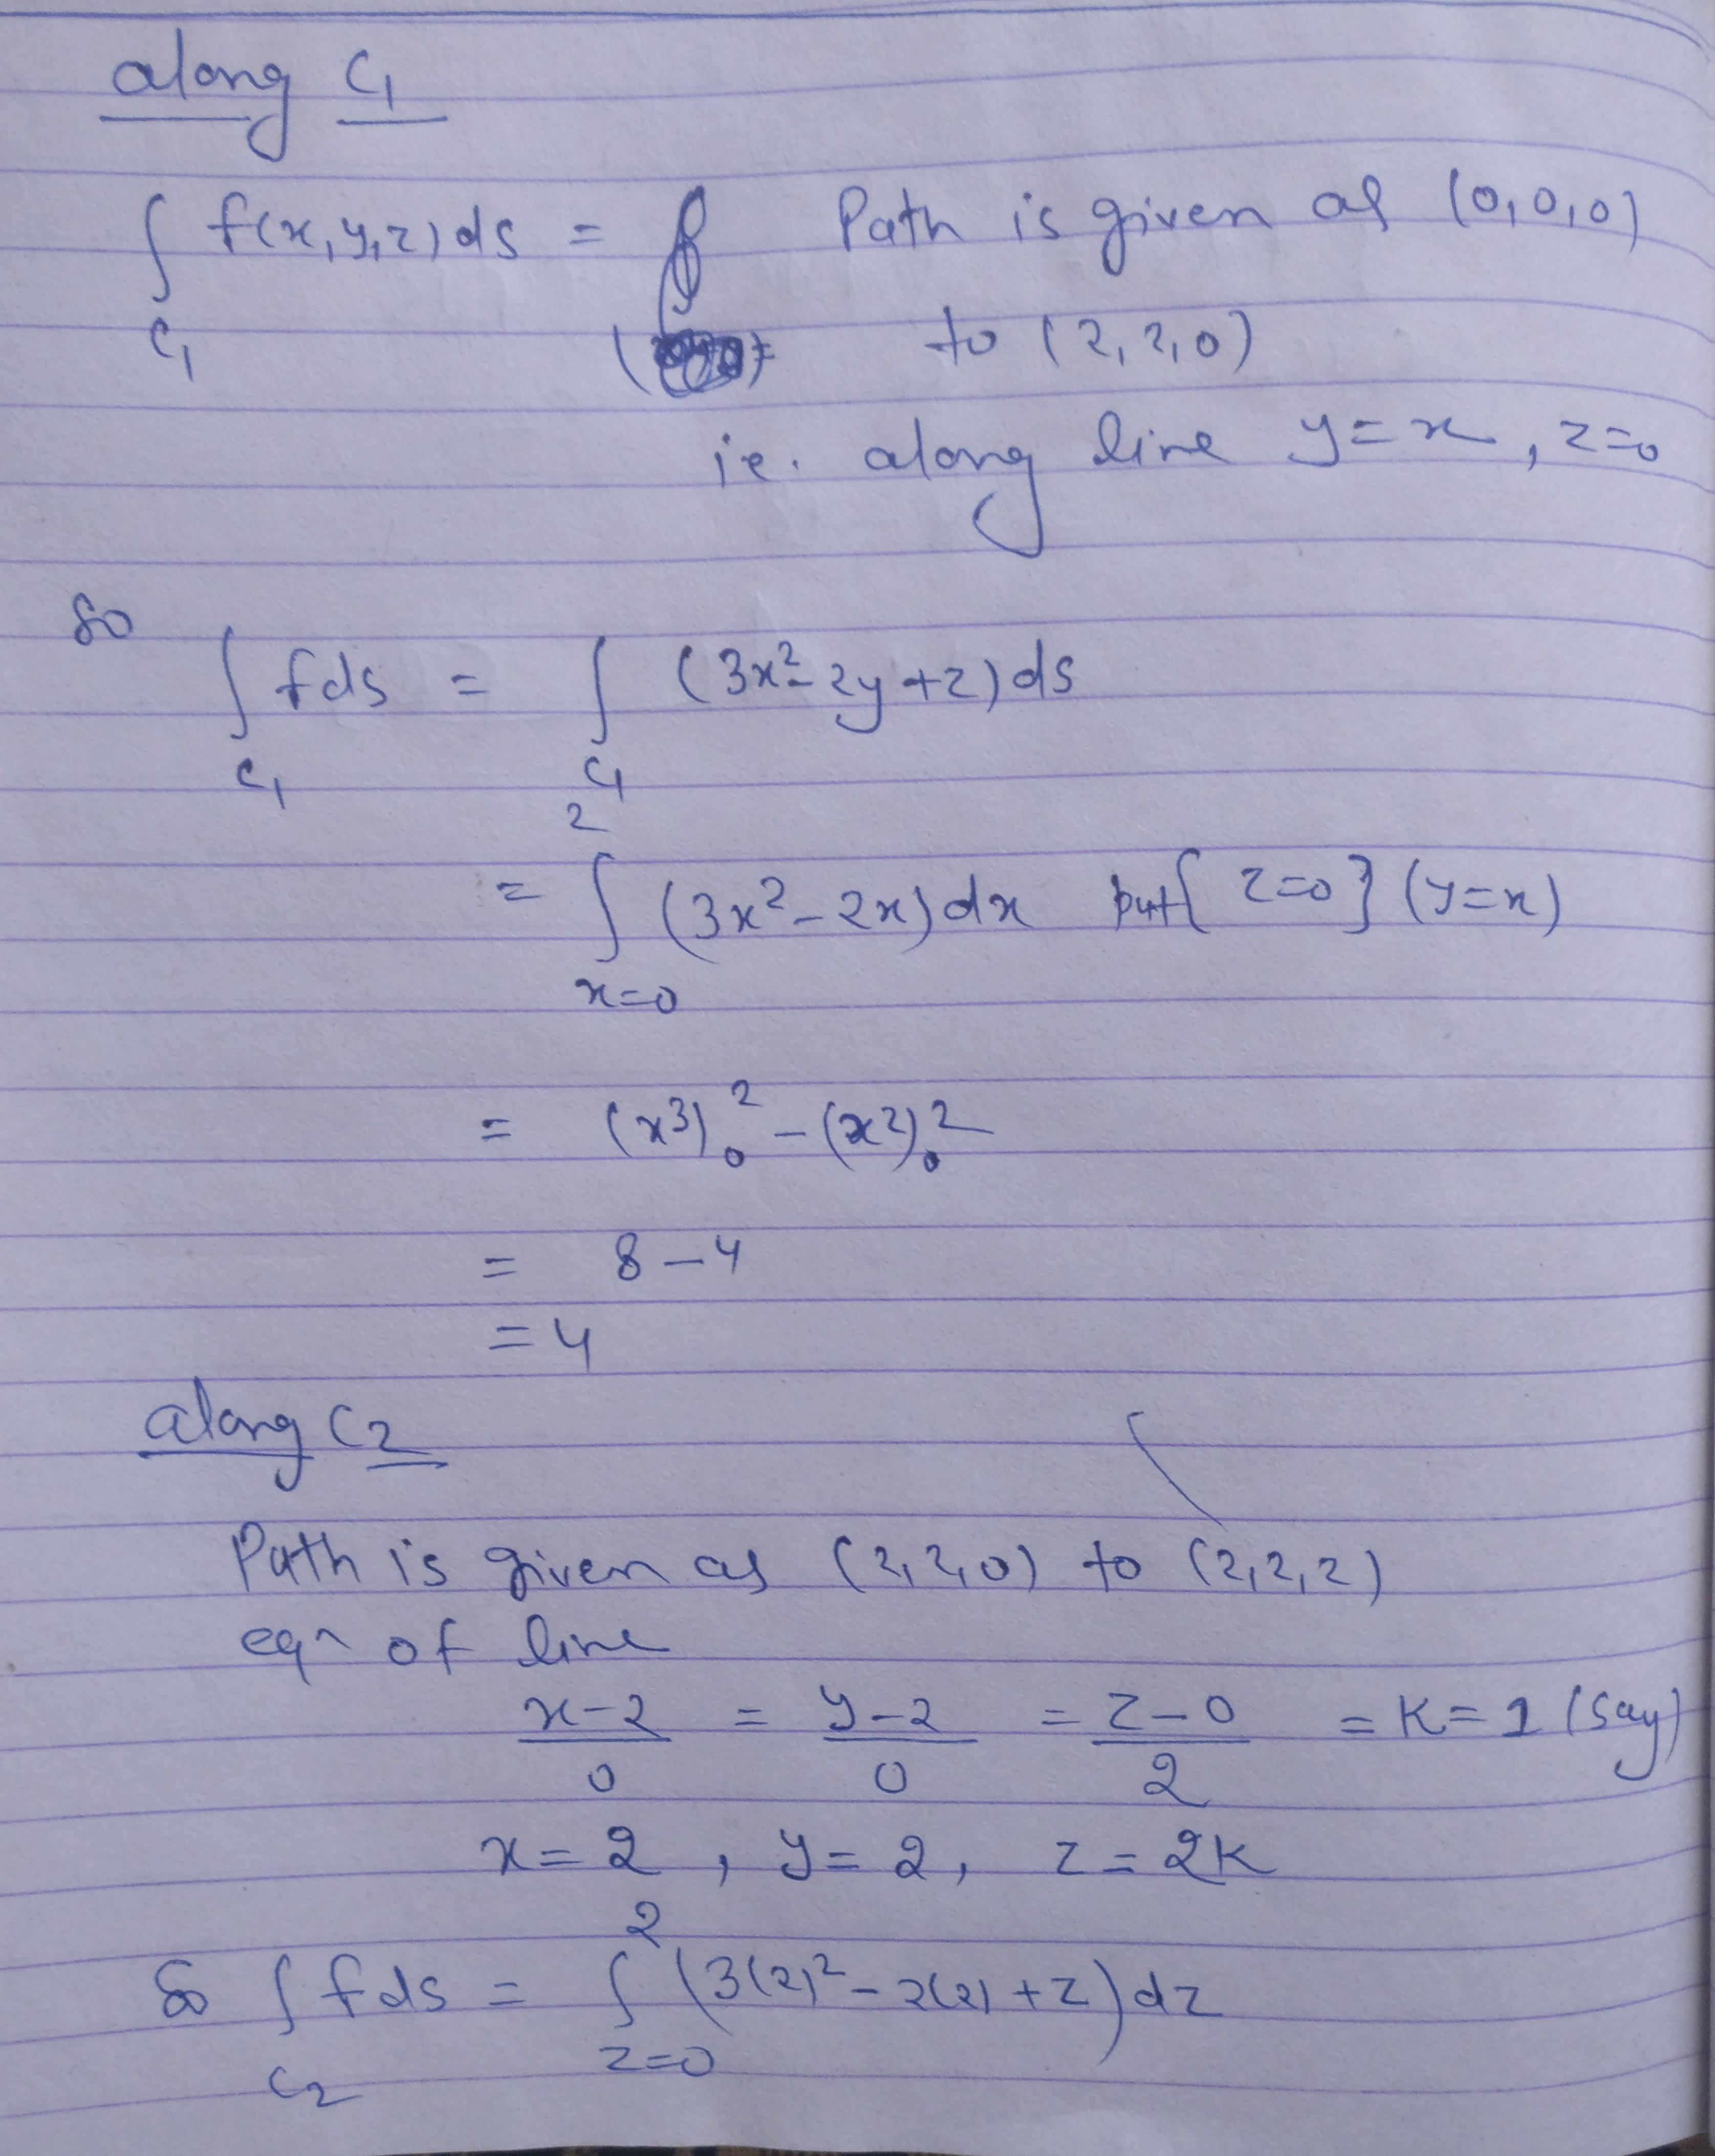 along C₁
∫ f(x,y,z)ds = Path is given as (0,0,0)
C₁ to (2,2,0)
ie. along line y=x, z=0
So
∫ fds = ∫ (3x²-2y+z)ds
C₁ C₁
2
= ∫ (3x²-2x)dx put{ z=0} (y=x)
x=0
= (x³)₀² - (x²)₀²
= 8-4
=4
along C₂
Path is given as (2,2,0) to (2,2,2)
eqn of line
x-2 = y-2 = z-0 = K=1 (say)
0 0 2
x=2, y=2, z=2K
2
So ∫ fds = ∫ (3(2)²-2(2)+z)dz
C₂ z=0